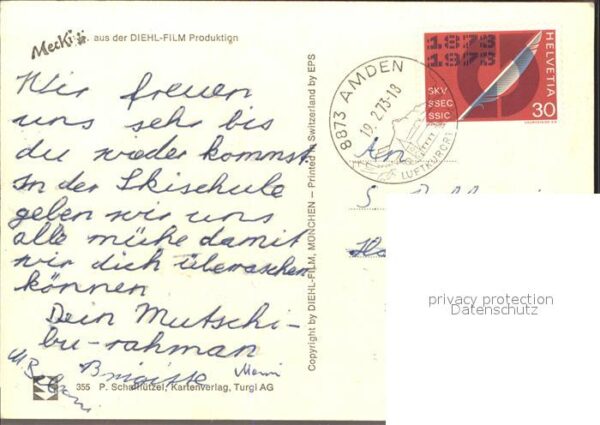 Mecki... aus der DIEHL-FILM Produktion
Wir freuen
uns sehr bis
du wieder kommst.
In der Skischule
geben wir uns
alle mühe damit
wir dich überraschen
können
Dein Mutschi-
bu-rahman
Brigitte
355 P. Scharnützel, Kartenverlag, Turgi AG
Copyright by DIEHL-FILM, MÜNCHEN – Printed in Switzerland by EPS
8873 AMDEN
19.2.73-18
LUFTKURORT
1873
1973
SKV
SSEC
SSIC
HELVETIA
30
An
privacy protection
Datenschutz